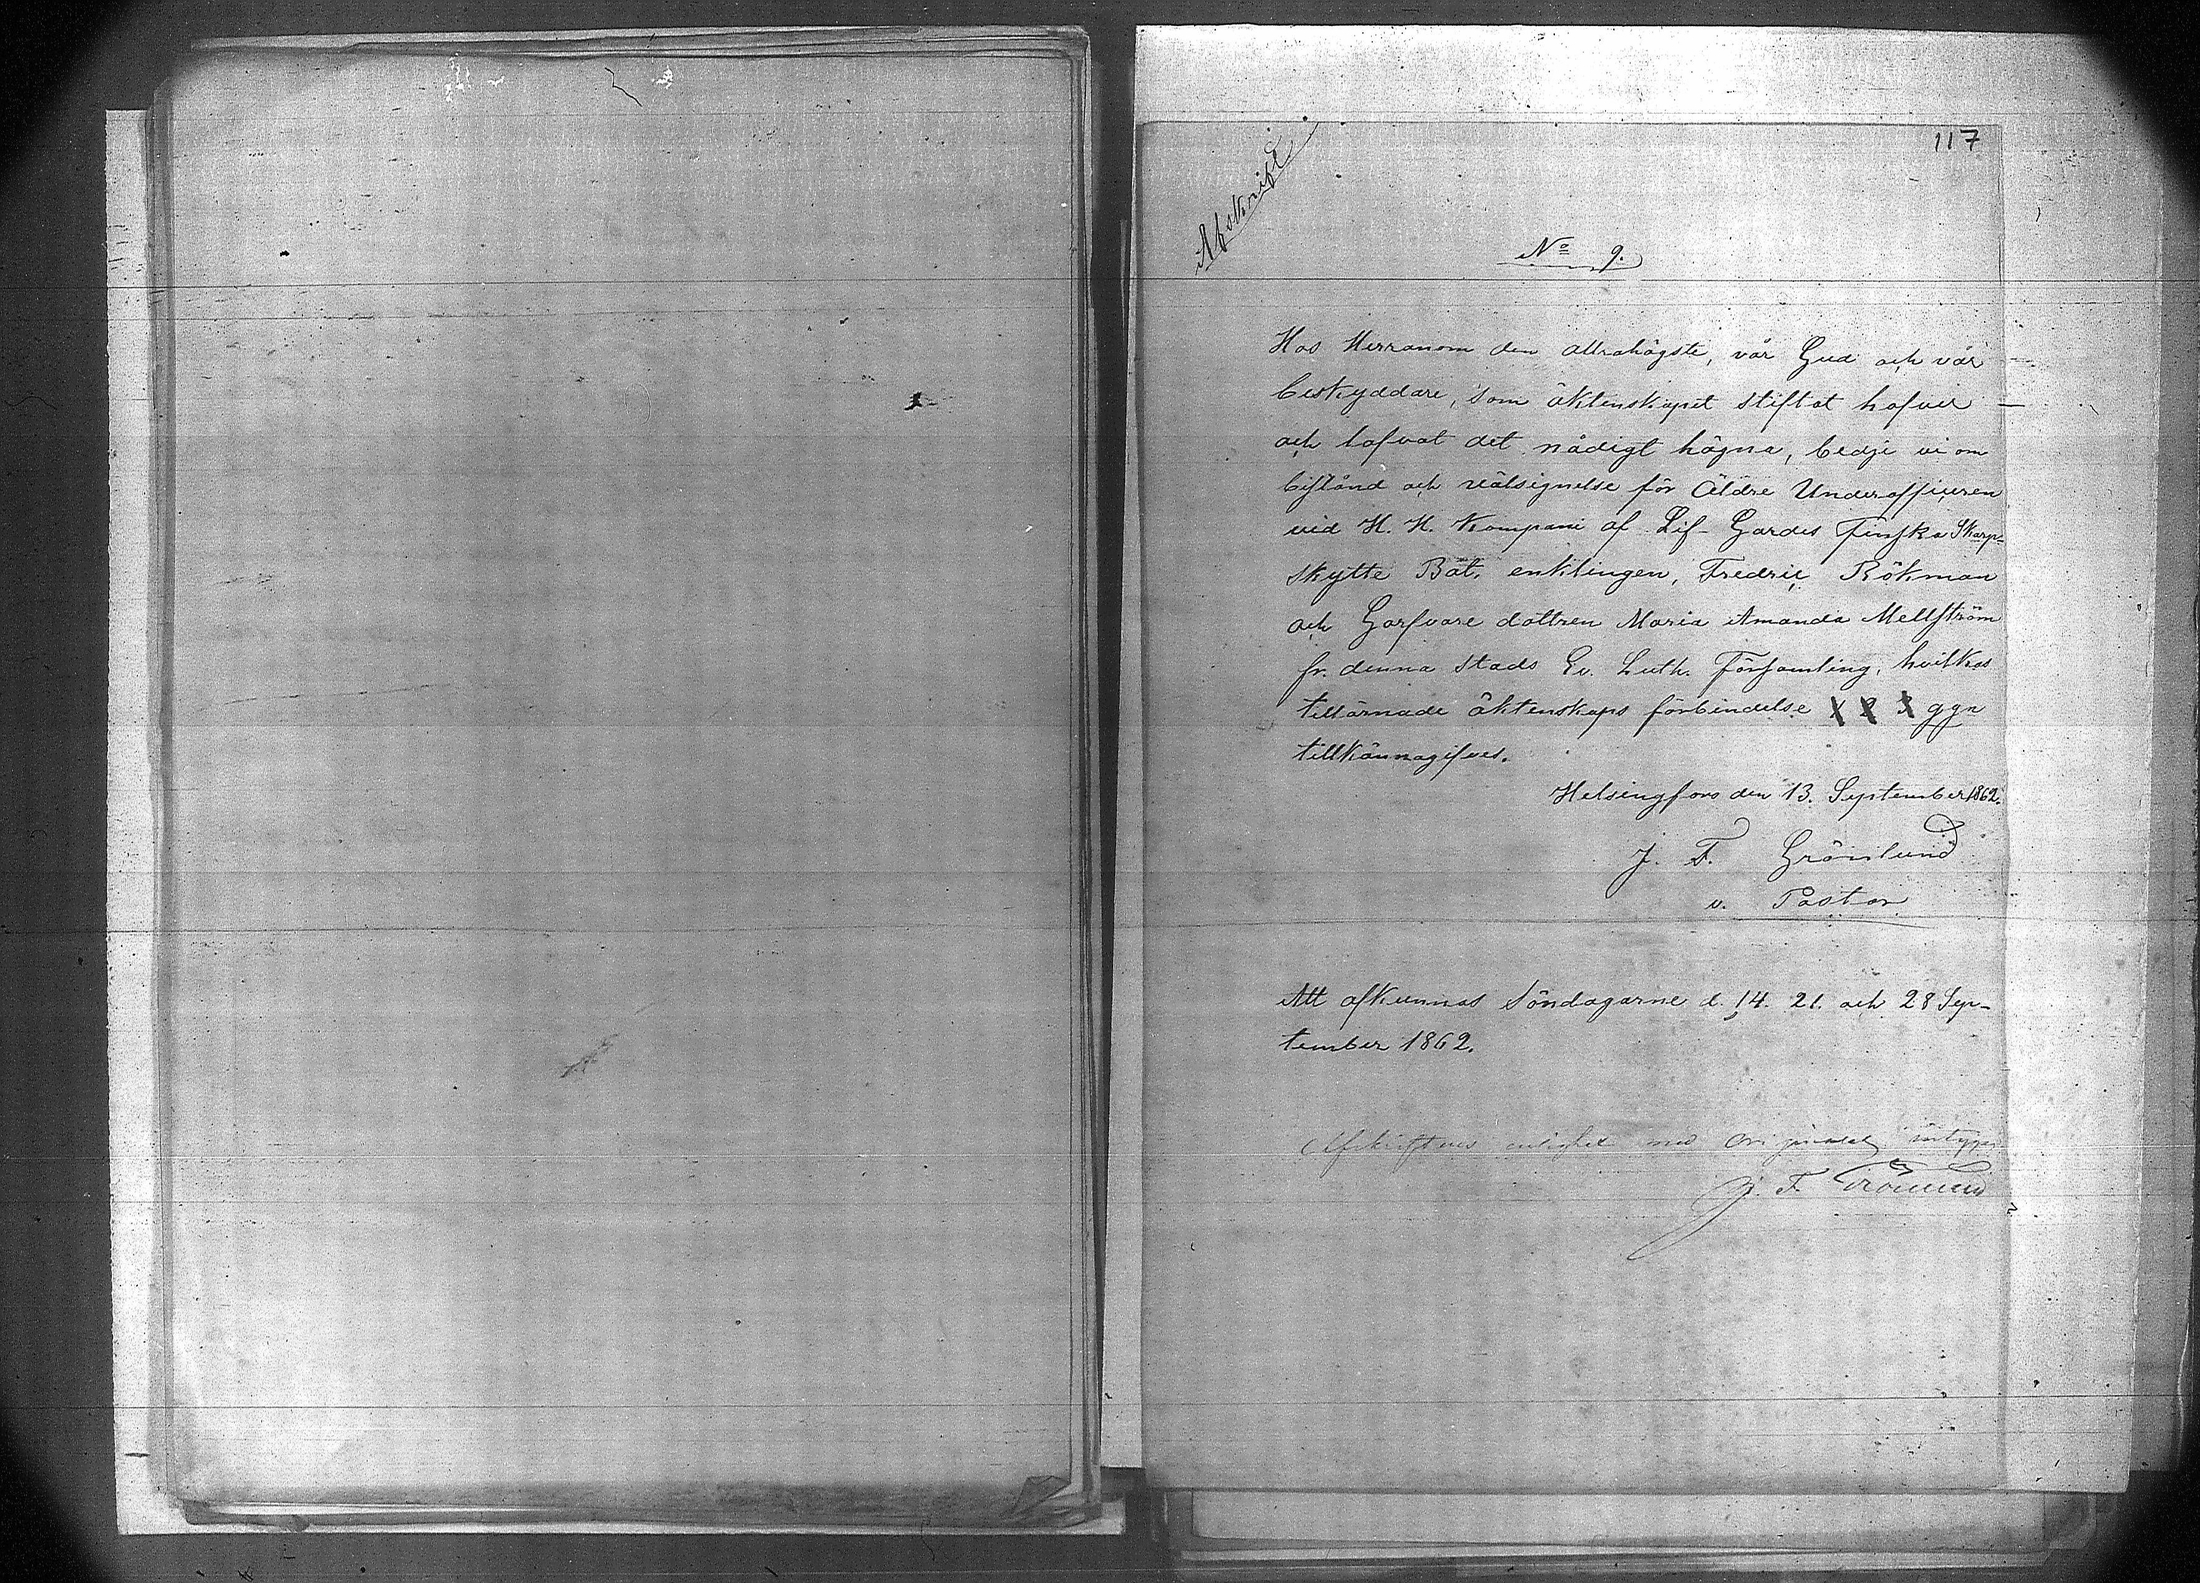 117
Afskrift
No 9.
Hos Herranom den allrahögste, vår Gud och vår
beskyddare, som äktenskapet stiftat hafver
och lofvat det nådigt hägna, bedje vi om
bistånd och välsignelse för Äldre Underofficeren
vid H. H. Kompani af Lif-Gardes Finska Skarp-
skytte Bat. enklingen, Fredric Rökman
och Garfvare dottren Maria Amanda Mellström
fr. denna stads Ev. Luth. Församling, hvilkas
tillärnade äktenskaps förbindelse 1 2 3 ggn
tillkännagifves.
Helsingfors den 13. September 1862.
J. F. Grönlund
v. Pastor
Att afkunnas Söndagarne d. 14. 21. och 28 Sep-
tember 1862.
Afskriftens enlighet med originalet intygar
J. F. Grönlund